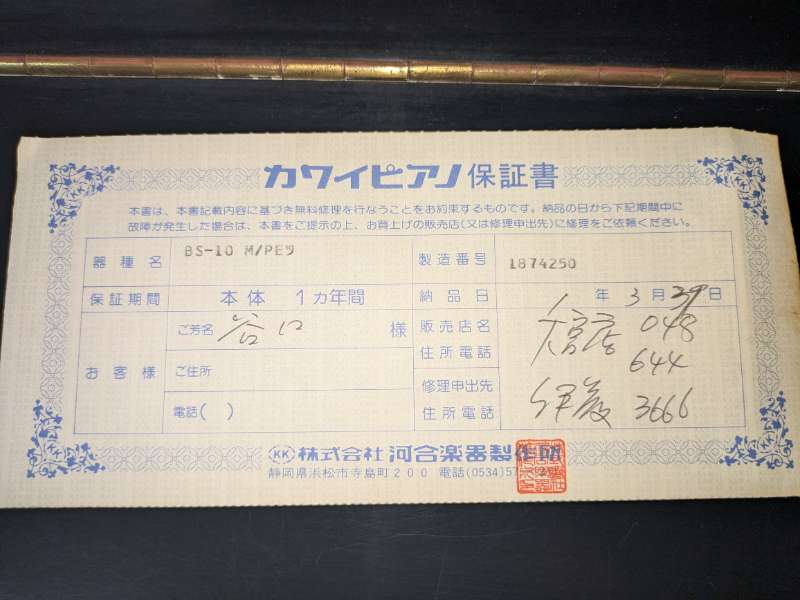 カワイピアノ 保証書
本書は、本書記載内容に基づき無料修理を行なうことをお約束するものです。納品の日から下記期間中に
故障が発生した場合は、本書をご提示の上、お買上げの販売店(又は修理申出先)に修理をご依頼ください。
器種名 BS-10 M/PEｸ 製造番号 1874250
保証期間 本体 1ヵ年間 納品日 年 3 月 29 日
お客様 ご芳名 谷口 様
ご住所
電話( )
販売店名 048
住所電話 644
修理申出先
住所電話 伊藤 3666
KK 株式会社 河合楽器製作所
静岡県浜松市寺島町200 電話(0534)57